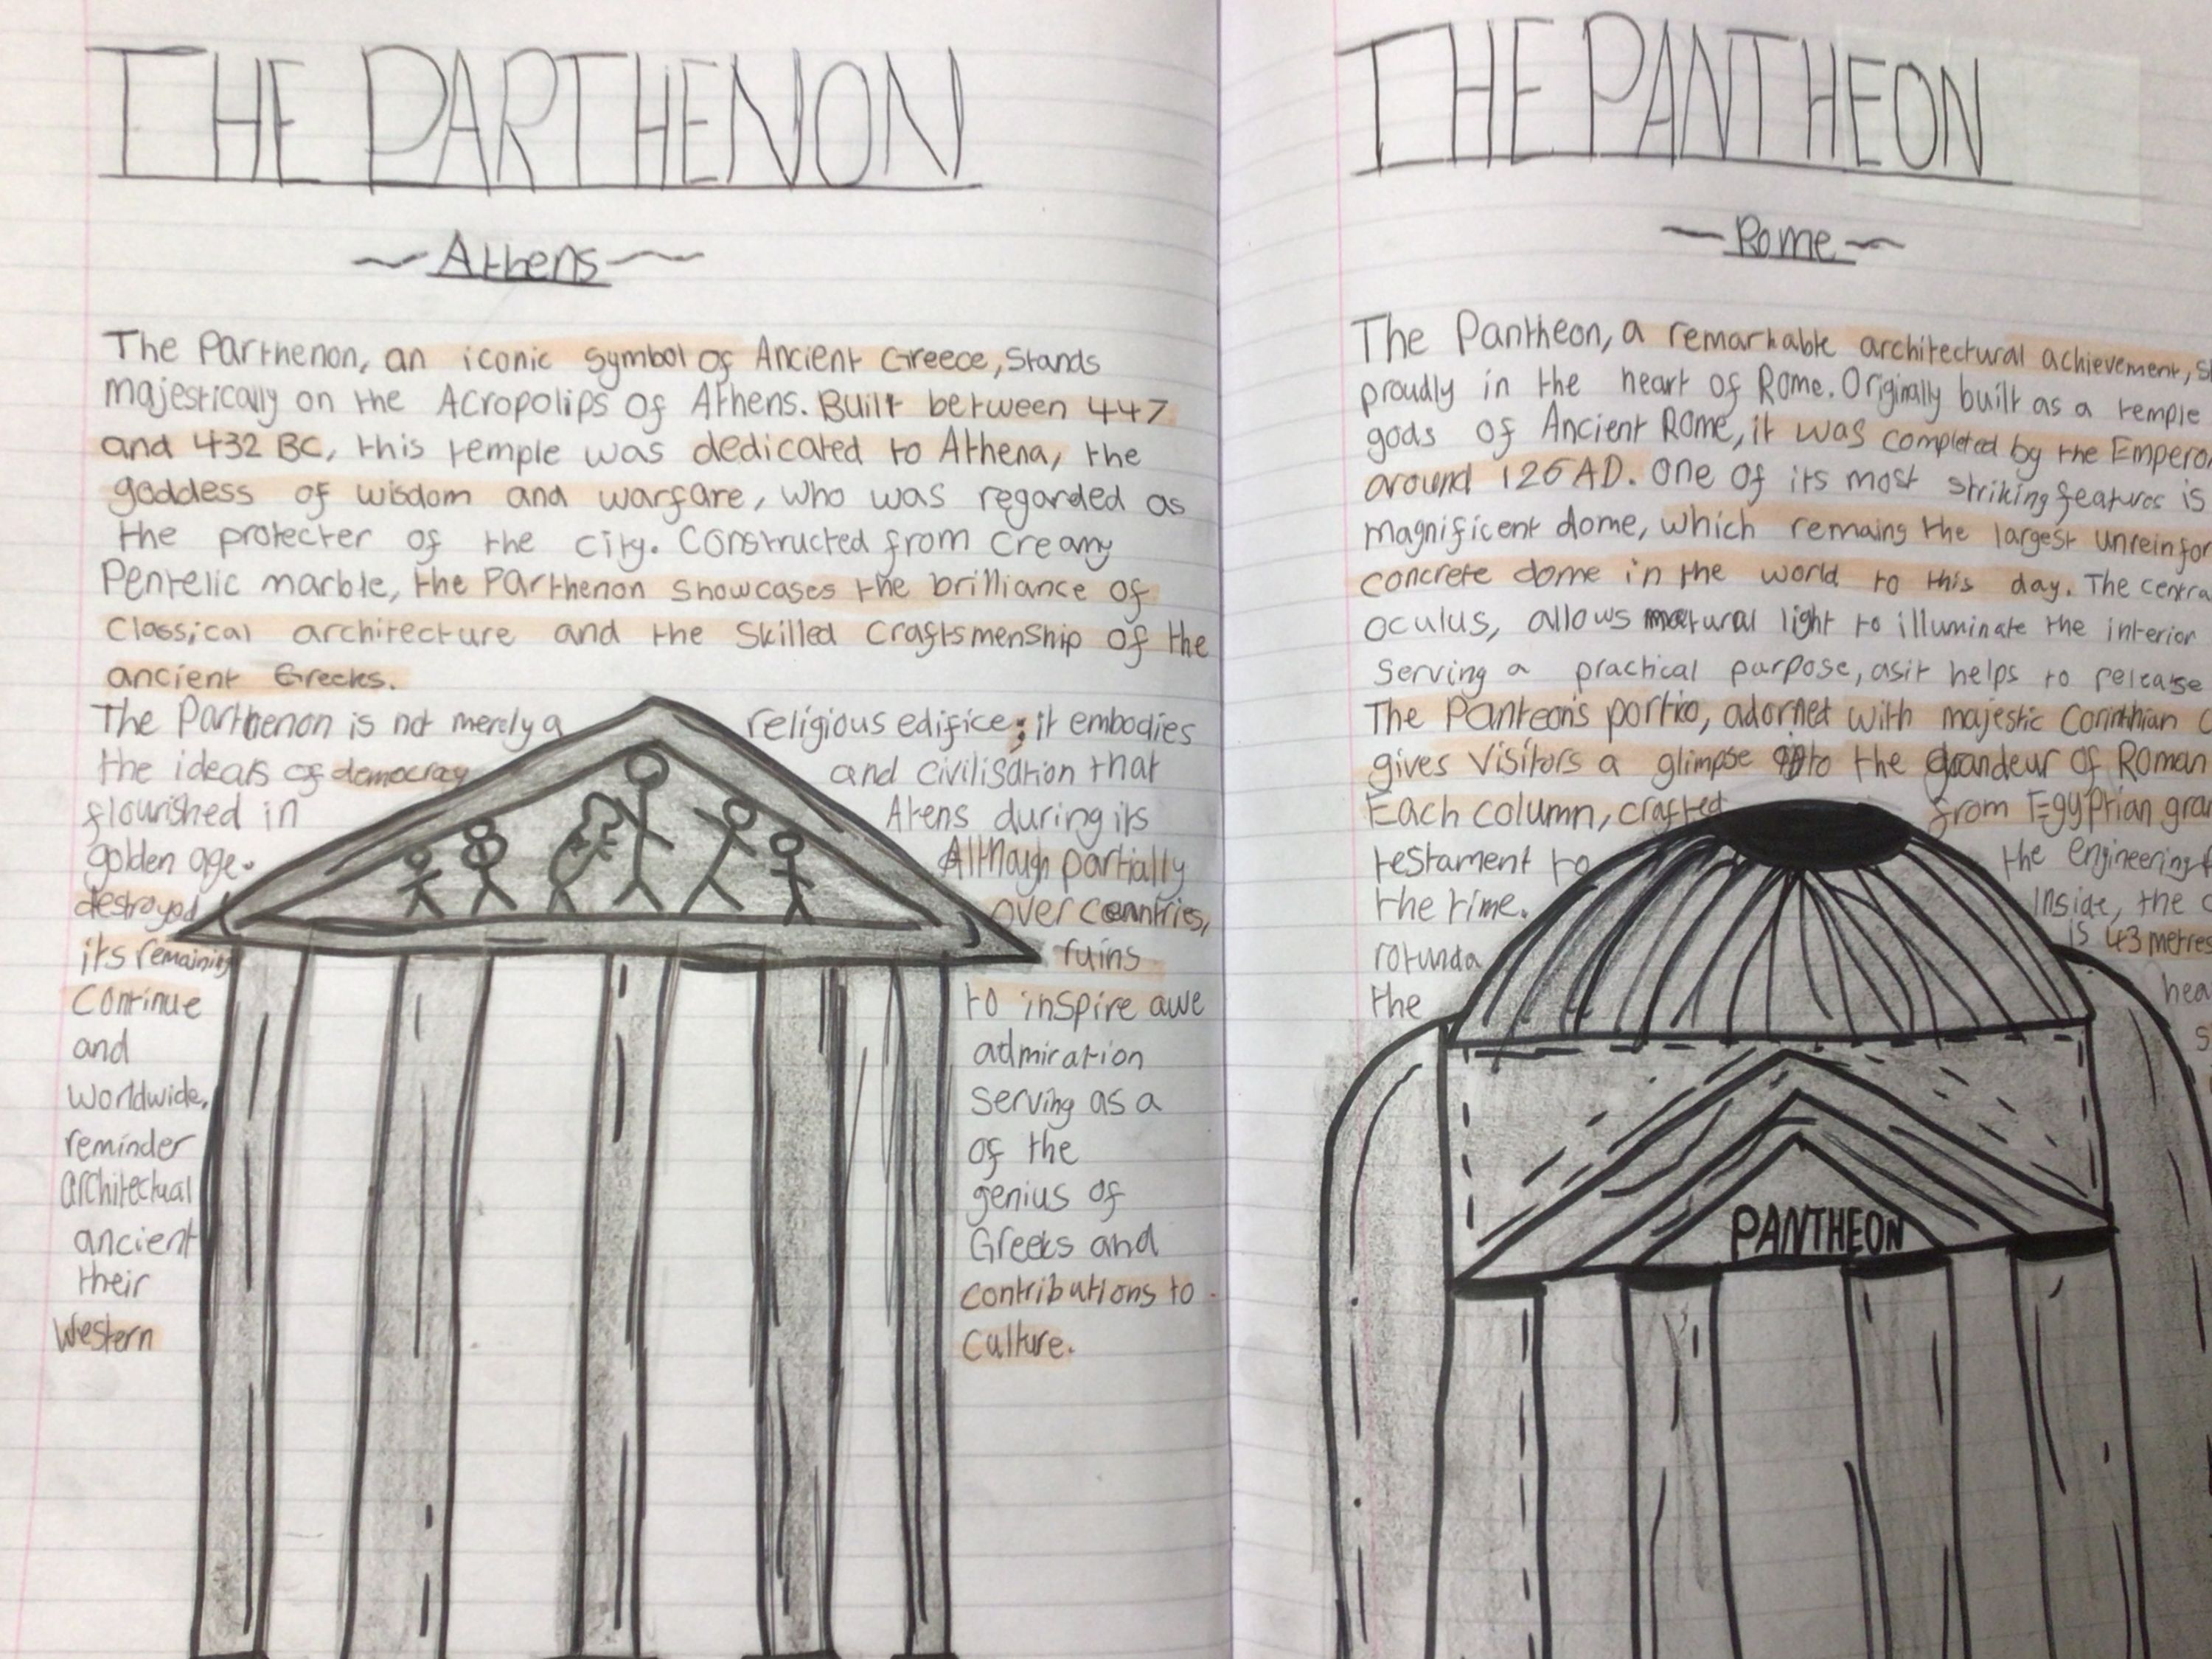 THE PARTHENON
~ Athens ~
The Parthenon, an iconic symbol of Ancient Greece, stands
majestically on the Acropolips of Athens. Built between 447
and 432 BC, this temple was dedicated to Athena, the
goddess of wisdom and warfare, who was regarded as
the protecter of the city. Constructed from creamy
Pentelic marble, the Parthenon showcases the brilliance of
Classical architecture and the skilled craftsmenship of the
ancient Greeks.
The Parthenon is not merely a religious edifice; it embodies
the ideals of democracy and civilisation that
flourished in Atens during its
golden age. Although partially
destroyed over centries,
its remaining ruins
continue to inspire awe
and admiration
worldwide, serving as a
reminder of the
architectual genius of
ancient Greeks and
their contributions to
Western culture.
THE PANTHEON
~ Rome ~
The Pantheon, a remarkable architectural achievement,
proudly in the heart of Rome. Originally built as a temple
gods of Ancient Rome, it was completed by the Empero
around 126 AD. One of its most striking features is
magnificent dome, which remains the largest unreinfor
concrete dome in the world to this day. The centra
oculus, allows natural light to illuminate the interior
serving a practical purpose, as it helps to release
The Panteon's portico, adorned with majestic Corinthian
gives visitors a glimpse into the grandeur of Roman
Each column, crafted from Egyptian gra
testament to the engineering
the time. Inside, the
rotunda is 43 metres
the hea
PANTHEON